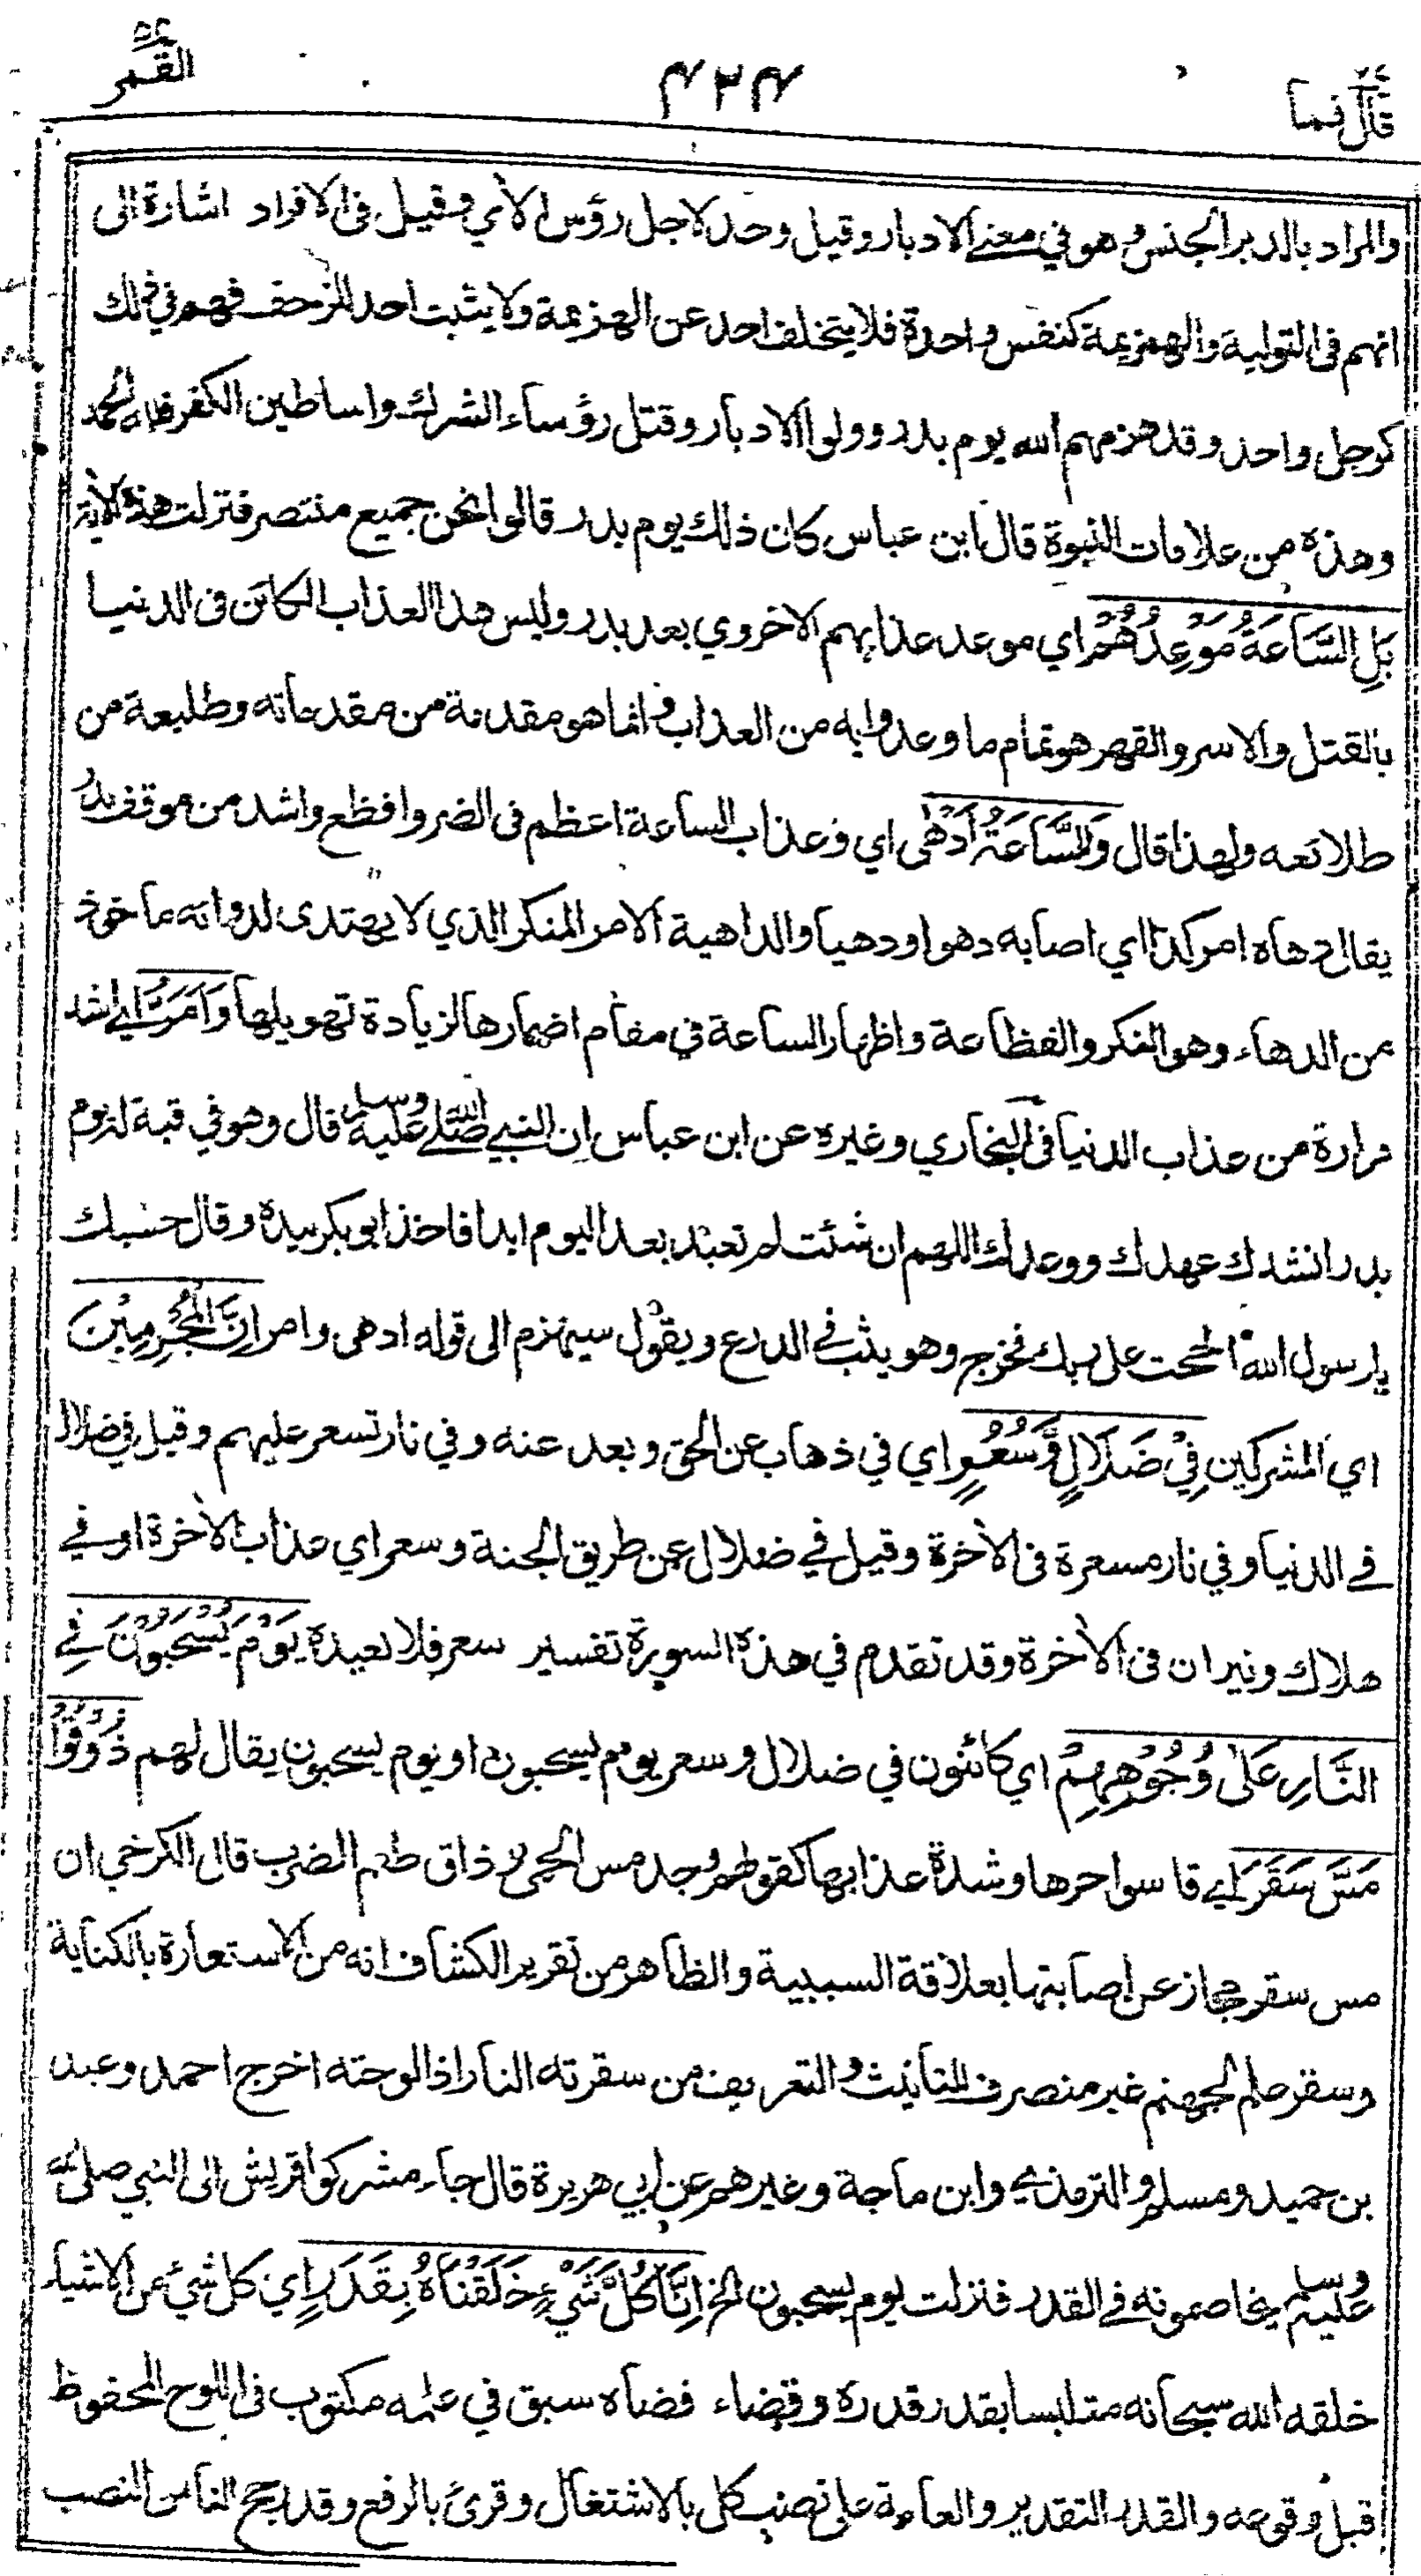 قال فما ٤٢٤ القمر
والمراد بالدبر الجنس وهو في معنى الادبار وقيل وحد لاجل رؤس الأي وقيل فى الافراد اشارة الى
انهم فى التولية والهزيمة كنفس واحدة فلا يتخلف احد عن الهزيمة ولا يثبت احد للزحف فهم في ذلك
كرجل واحد وقد هزمهم الله يوم بدر وولوا الادبار وقتل رؤساء الشرك واساطين الكفر فلله الحمد
وهذه من علامات النبوة قال ابن عباس كان ذلك يوم بدر قالوا نحن جميع منتصر فنزلت هذه الأية
بَلِ السَّاعَةُ مَوْعِدُهُمْ اي موعد عذابهم الاخروي بعد بدر وليس هذا العذاب الكائن فى الدنيا
بالقتل والاسر والقهر هو تمام ما وعدوا به من العذاب وانما هو مقدمة من مقدماته وطليعة من
طلائعه ولهذا قال وَالسَّاعَةُ اَدْهٰى اي وعذاب الساعة اعظم فى الضر وافظع واشد من موقف بدر
يقال دهاه امر كذا اي اصابه دهوا ودهيا والداهية الامر المنكر الذي لا يهتدى لدوائه ماخوذ
من الدهاء وهو النكر والفظاعة واظهار الساعة في مقام اضمارها لزيادة تهويلها وَاَمَرُّ اي اشد
مرارة من عذاب الدنيا فى البخاري وغيره عن ابن عباس ان النبي صلى الله عليه وسلم قال وهو في قبة له يوم
بدر انشدك عهدك ووعدك اللهم ان شئت لم تعبد بعد اليوم ابدا فاخذ ابو بكر بيده وقال حسبك
يا رسول الله الححت على ربك فخرج وهو يثب في الدرع ويقول سيهزم الى قوله ادهى وامر اِنَّ الْمُجْرِمِيْنَ
اي المشركين فِيْ ضَلَالٍ وَّسُعُرٍ اي في ذهاب عن الحق وبعد عنه وفي نار تسعر عليهم وقيل في ضلال
في الدنيا وفي نار مسعرة فى الأخرة وقيل في ضلال عن طريق الجنة وسعر اي عذاب الأخرة او في
هلاك ونيران فى الأخرة وقد تقدم في هذه السورة تفسير سعر فلا نعيده يَوْمَ يُسْحَبُوْنَ فِي
النَّارِ عَلٰى وُجُوْهِهِمْ اي كائنون في ضلال وسعر يوم يسحبون او يوم يسحبون يقال لهم ذُوْقُوْا
مَسَّ سَقَرَ اي قاسوا حرها وشدة عذابها كقولهم وجد مس الحمى وذاق طعم الضرب قال الكرخي ان
مس سقر مجاز عن اصابتها بعلاقة السببية والظاهر من تقرير الكشاف انه من الاستعارة بالكناية
وسقر علم لجهنم غير منصرف للتأنيث والتعريف من سقرته النار اذا لوحته اخرج احمد وعبد
بن حميد ومسلم والترمذي وابن ماجة وغيرهم عن ابي هريرة قال جاء مشركوا قريش الى النبي صلى الله
عليه وسلم يخاصمونه في القدر فنزلت يوم يسحبون الخ اِنَّا كُلَّ شَيْءٍ خَلَقْنَاهُ بِقَدَرٍ اي كل شيء من الاشياء
خلقه الله سبحانه متلبسا بقدر قدره وقضاء قضاه سبق في علمه مكتوب فى اللوح المحفوظ
قبل وقوعه والقدر التقدير والعامة على نصب كل بالاشتغال وقرئ بالرفع وقد رجح الناس النصب